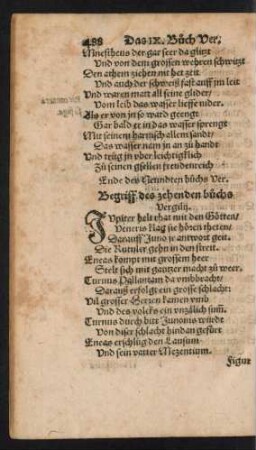 488 Das IX. Büch Ver.
Mnestheus der gar seer da glitzt
Und von dem grossen wehren schwitzt
Den athem ziehen nit het zeit
Und auch der schweiß fast auff im leit
Und waren matt all seine glider/
Vom leib das wasser lieffe nider.
Als er von in so ward geengt
Gar bald er in das wasser sprengt
Mit seinem harnisch allem sandt
Das wasser nam jn an zu handt
Und trüg jn über leichtigklich
Zu seinen gsellen freudenreich
Ende des Neündten büchs Ver.
Begriff des zehenden büchs
Vergilij.
Jupiter halt rhat mit den Götten/
Veneris klag sie hören theten/
Darauff Juno je antwort geit.
Die Rutuler gehn in den streit.
Eneas kompt mit grossem heer
Stelt sich mit gantzer macht zu weer.
Turnus Pallantam da umbbracht/
Darauß erfolgt ein grosse schlacht:
Vil grosser Herren kamen umb
Und des volcks ein unzälich summ.
Turnus durch bitt Junonis würdt
Von diser schlacht hindan gefürt
Eneas erschlüg den Lausum
Und sein vatter Mezentium.
Figur